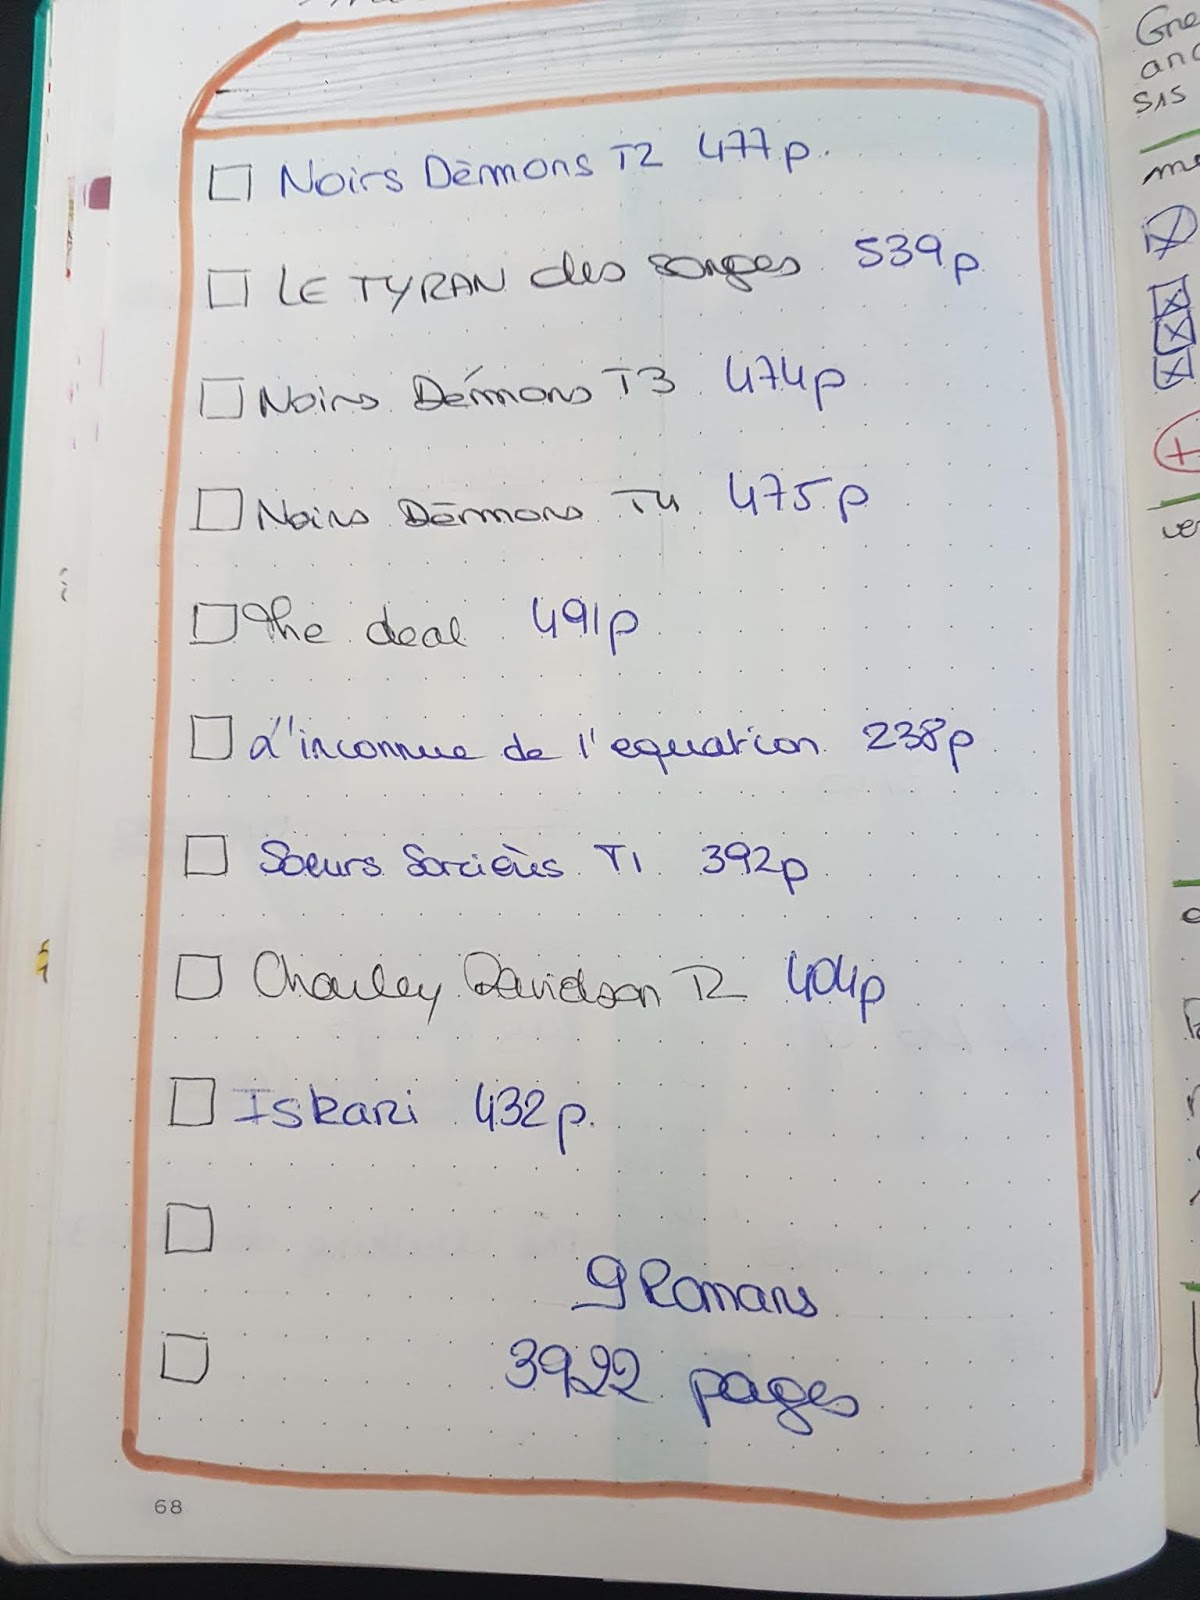 Noirs Démons T2 477p.
LE TYRAN des songes 539p
Noirs Démons T3 474p
Noirs Démons T4 475p
the deal 491p
L'inconnue de l'equation 238p
Soeurs Sorcières T1 392p
Charley Davidson T2 404p
Iskari 432p.
9 Romans
3922 pages
68
Gre
anc
SIS
me
ver